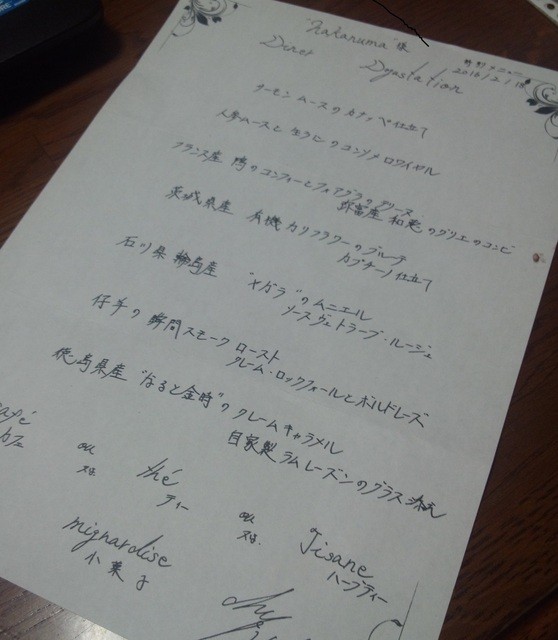 "Nakanuma" 様
特別メニュー
2016/2/18
Diner Dégustation
サーモン ムースのカナッペ仕立て
人参ムースと 生ウニのコンソメロワイヤル
フランス産 鴨のコンフィーとフォアグラのテリーヌ
和牛 のグリエのコンビ
茨城県産 有機カリフラワーのブルーテ
カプチーノ仕立て
石川県輪島産 "メダラ"のムニエル
ソースヴェトラーブ・ルージュ
仔羊の瞬間スモーク ロースト
クレーム・ロックフォールとボルドレーズ
徳島県産 "なると金時"のクレームキャラメル
自家製ラムレーズンのグラス添え
café ou thé ou Tisane
カフェ 又は ティー 又は ハーブティー
mignardise
小菓子